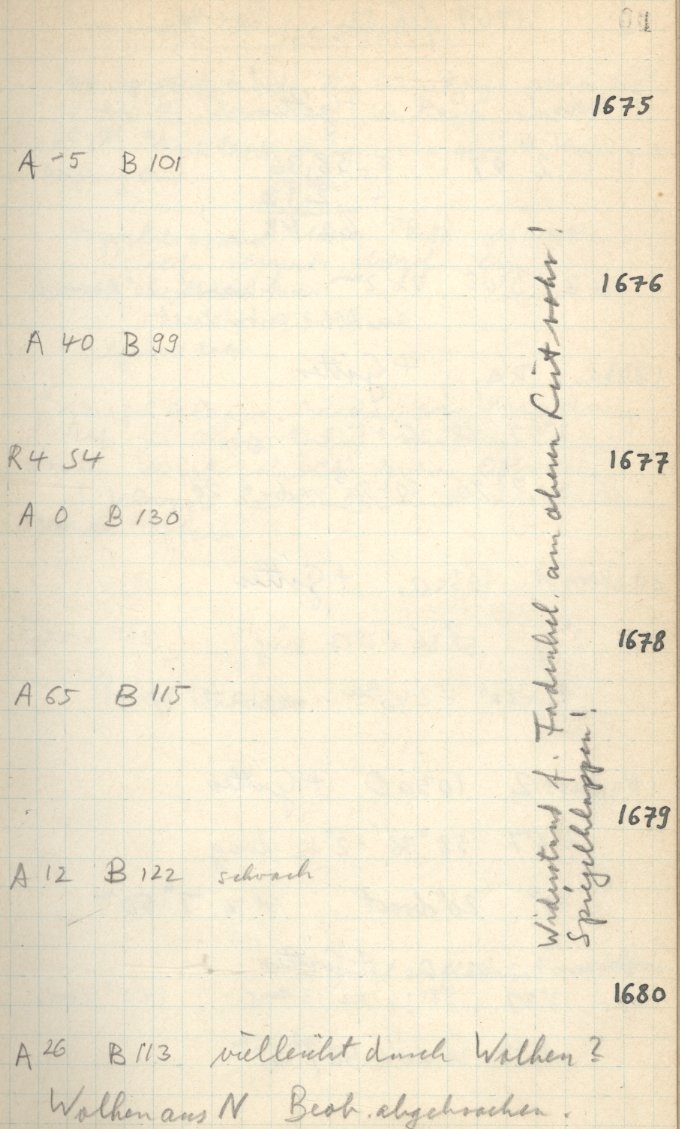 1675
A -5 B 101
1676
A 40 B 99
R4 S4
1677
A 0 B 130
1678
A 65 B 115
1679
A 12 B 122 schwach
1680
A 26 B 113 vielleicht durch Wolken?
Wolken aus N Beob. abgebrochen.
Widerstand f. Fadenbel. am oberen
Spiegelklappen!